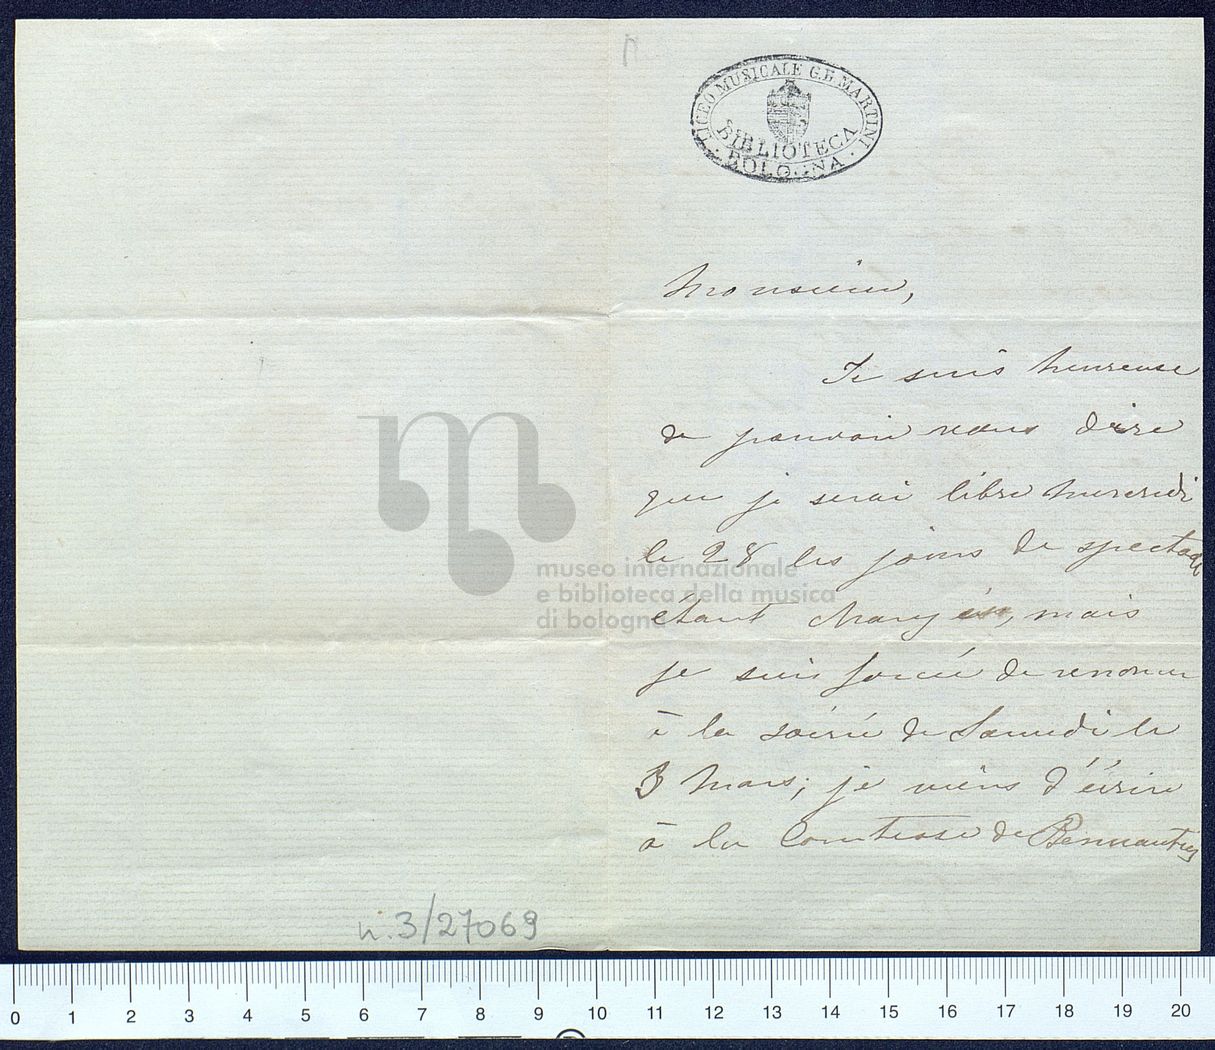 LICEO MUSICALE G.B. MARTINI
BIBLIOTECA
BOLOGNA
Monsieur,
Je suis heureuse
de pouvoir vous dire
que je serai libre mercredi
le 28 les jours de spectacle
etant changés, mais
je suis forcée de renoncer
à la soirée de Samedi le
3 Mars; je viens d'écrire
à la Comtesse de
museo internazionale
e biblioteca della musica
di bologna
n. 3/27069
0 1 2 3 4 5 6 7 8 9 10 11 12 13 14 15 16 17 18 19 20